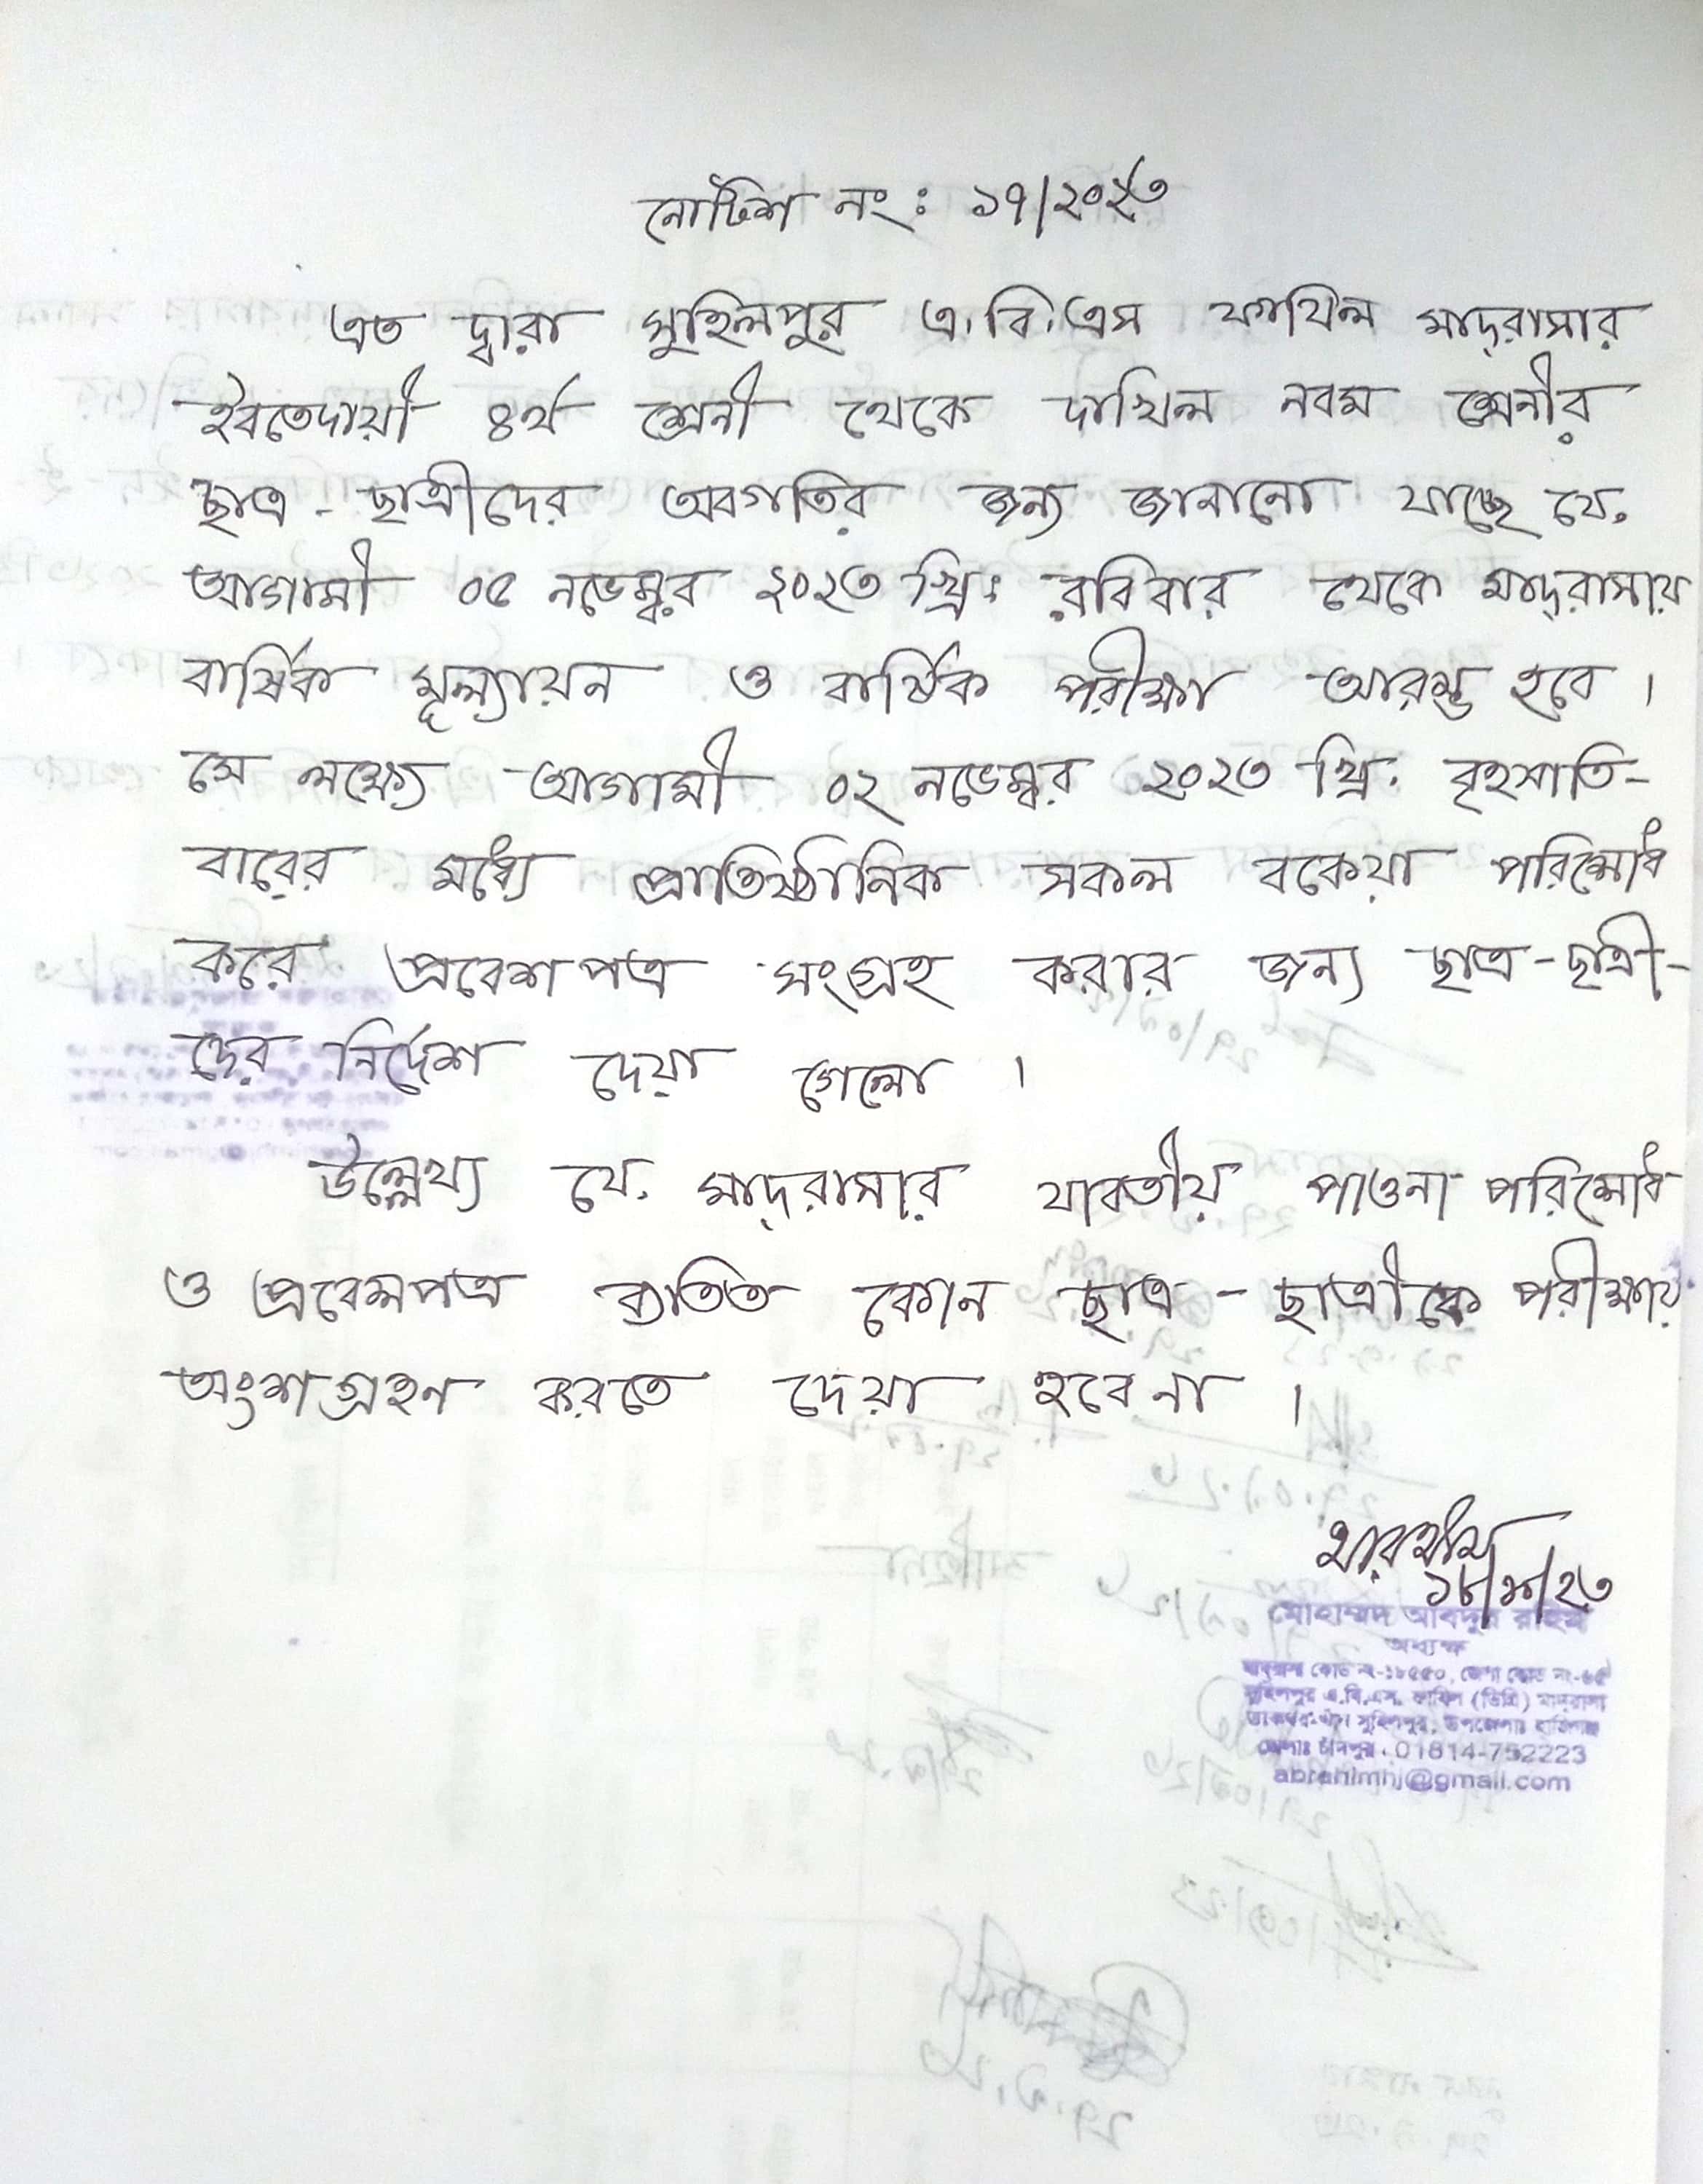 নোটিশ নং : ১৭/২০২৩
এত দ্বারা সুহিলপুর এ.বি.এস ফাযিল মাদ্‌রাসার
ইবতেদায়ী ৪র্থ শ্রেনী থেকে দাখিল নবম শ্রেনীর
ছাত্র - ছাত্রীদের অবগতির জন্য জানানো যাচ্ছে যে,
আগামী ০৫ নভেম্বর ২০২৩ খ্রিঃ রবিবার থেকে মাদ্‌রাসায়
বার্ষিক মূল্যায়ন ও বার্ষিক পরীক্ষা আরম্ভ হবে ।
সে লক্ষ্যে আগামী ০২ নভেম্বর ২০২৩ খ্রি. বৃহস্পতি-
বারের মধ্যে প্রাতিষ্ঠানিক সকল বকেয়া পরিশোধ
করে প্রবেশপত্র সংগ্রহ করার জন্য ছাত্র-ছাত্রী-
দের নির্দেশ দেয়া গেলো ।
উল্লেখ্য যে, মাদ্‌রাসার যাবতীয় পাওনা পরিশোধ
ও প্রবেশপত্র ব্যতিত কোন ছাত্র - ছাত্রীকে পরীক্ষায়
অংশগ্রহন করতে দেয়া হবেনা ।
মোহাম্মদ আবদুর রাহিম
অধ্যক্ষ
মাদ্রাসা কোড নং-১৮৫৫০, জেলা কোড নং-৬৫
সুহিলপুর এ.বি.এস. ফাযিল (ডিগ্রি) মাদ্‌রাসা
সুহিলপুর, উপজেলাঃ হাজিগঞ্জ
জেলাঃ চাঁদপুর। 01814-752223
abrahimhj@gmail.com